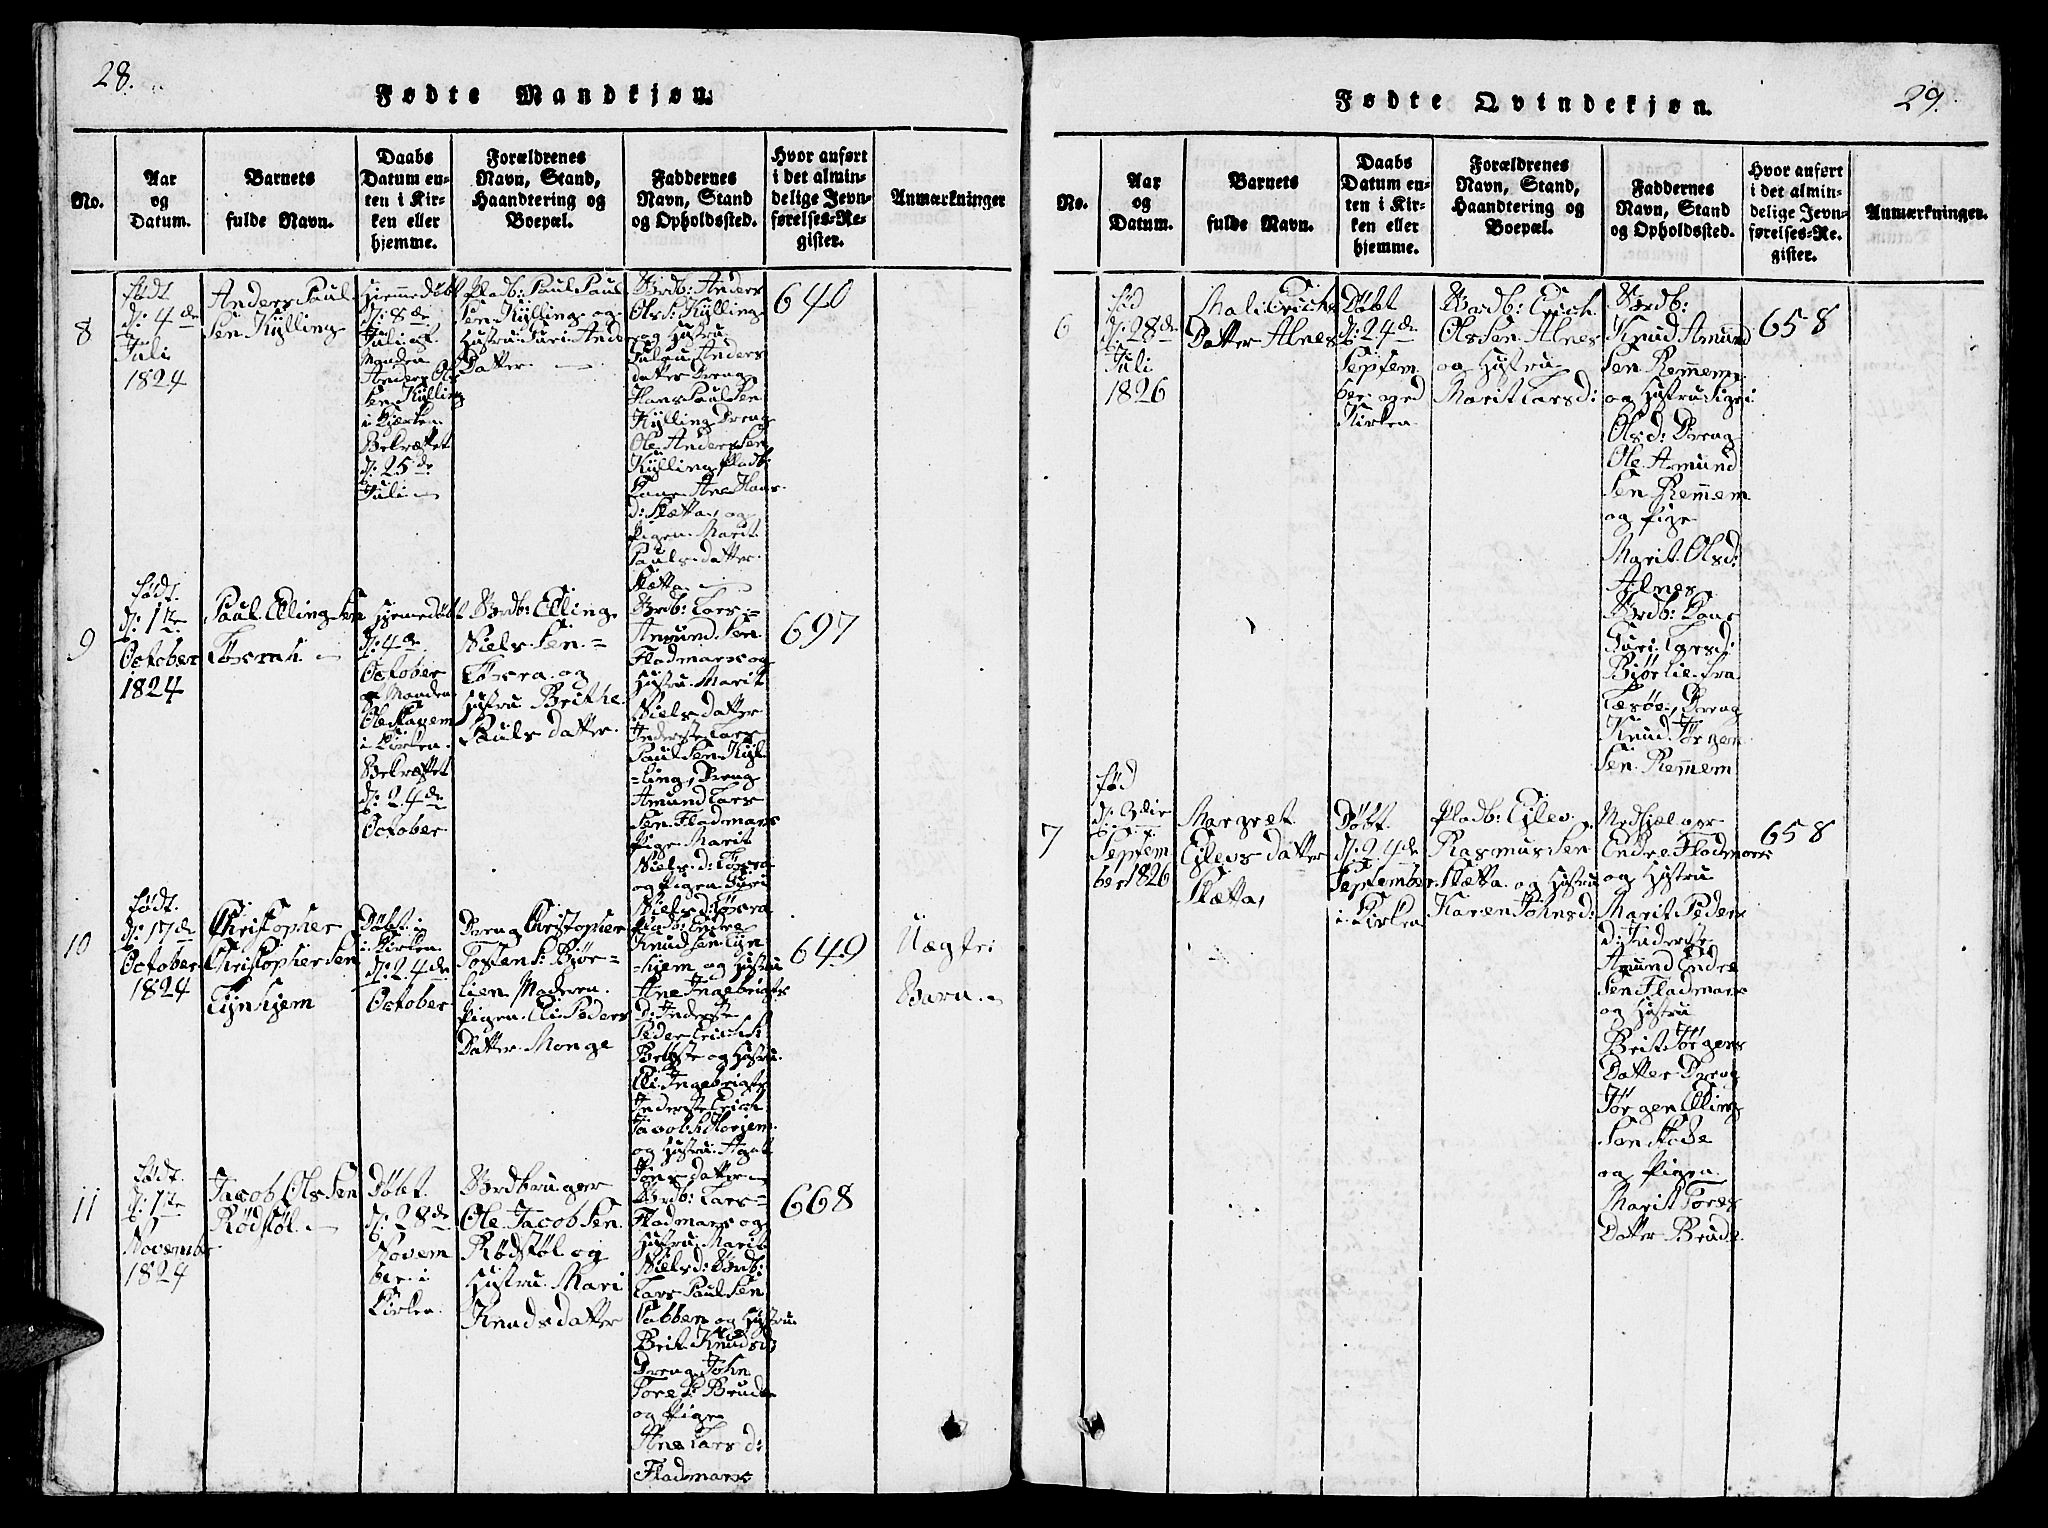 28.
Fødte Mandkjøn.
No.
Aar
og
Datum.
Barnets
fulde Navn.
Daabs
Datum en-
ten i Kir-
ken eller
hjemme.
Forældrenes
Navn, Stand,
Haandtering og
Boepæl.
Faddernes
Navn, Stand
og Opholdssted.
Hvor anført
i det almin-
delige Jevn-
førelses-Re-
gister.
Anmærkninger
8
født
d: 4de
Juli
1824
Anders Paul
Sen Kÿlling
Hjemmedøbt
d: 8de
Juli af
Manden
Anders Ols
Sen Kÿlling
i Kirken
Bekræftet
d: 25de
Juli
Pladb: Paul Paul
Sen Kÿlling og
Hustru Guri Anders
Datter
Brdb: Anders
Ols: Kÿlling
og Hustru
Anders
datter Dreng
Hans Paul Sen
Kÿlling Dreng
Ole Anders Sen
Kÿlling Pladb:
Kone Ane Hans
d: Slætta, og
Pigen Marit
Pauls datter
Slætta
640
9
født
d: 1te
October
1824
Paul Elling Sen
Løvrah
Hjemedøbt
d: 4de
October
af Manden
Ole
i Kirken
Bekræftet
d: 24de
October
Brdb: Elling
Niels Sen
Løvra og
Hustru Brithe
Pauls datter
Brdb: Lars
Amund Sen
Fladmark og
Hustru Marit
Niels datter
Inderste Lars
Paul Sen Kÿl
ling, Dreng
Amund Lars
Sen Fladmark
Pige Marit
Niels d: Løvra
og Pigen Guri
Niels d: Løvra
697
10
født
d: 17de
October
1824
Christopher
Christopher Sen
Lÿnhjem
Døbt
i Kirken
d: 24de
October
Dreng Christopher
Tosten S: Bjør-
lien Moderen
Pigen Eli Peders
Datter Monge
Pladb: Endre
Knudsen Lÿn
hjem og Hustru
Ane Ingebrigts
D: Inderste
Peder Erich S:
og Hustru
Eli Ingebrigts
Inderste Erich
Jacob S: Horjem
og Hustru Agat
Jons datter
649
Uægte
Barn
11
født
d: 1te
November
1824
Jacob Ols Sen
Rødstøl
Døbt
d: 28de
Novem
ber i
Kirken
Brdbruger
Ole Jacob Sen
Rødstøl og
Hustru Mari
Knuds datter
Brdb: Lars
Fladmark og
Hustru Marit
Niels d: Brdb:
Lars Paul Sen
Sabben og Hustru
Brit Knuds D
Dreng John
Tore S: Brude
og Pige
Ane Lars d:
Fladmark
668
29.
Fødte Qvindekjøn.
No.
Aar
og
Datum.
Barnets
fulde Navn.
Daabs
Datum en-
ten i Kir-
ken eller
hjemme.
Forældrenes
Navn, Stand,
Haandtering og
Boepæl.
Faddernes
Navn, Stand
og Opholdssted.
Hvor anført
i det almin-
delige Jevn-
førelses-Re-
gister.
Anmærkninger.
6
fød
d: 28de
Juli
1826
Mali Erichs
Datter Alnes
Døbt
d: 24de
Septem
ber ved
Kirken
Brdb: Erich
Ols Sen Alnes
og Hustru
Marit Lars d:
Brdb:
Knud Amund
Sen Remmem
og Hustru Sigri
Ols d: Dreng
Ole Amund
Sen Remmem
og Pige
Marit Ols d:
Alnes
Brdb: Kone
Guri Lars d:
Bjørlie fra
Læsøe, Dreng
Knud Jørgen
Sen Remmem
658
7
fød
Septem
ber 1826
Margret
Eilevs datter
Slætta,
Døbt
d: 24de
September
i Kirken
Pladb: Eilev
Rasmus Sen
Slætta og Hustru
Karen Johns d:
Medhjælper
Endre Fladmark
og Hustru
Marit Peders
d: Inderste
Amund Endre
Sen Fladmark
og Hustru
Brit Jørgens
Datter Dreng
Jørgen Elling
Sen
og Pigen
Marit Tores
Datter Brude
658